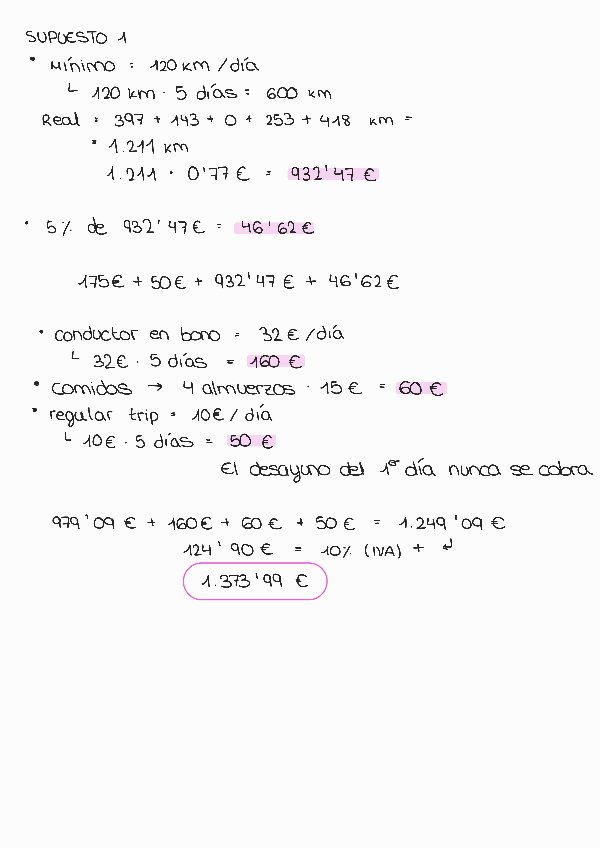 SUPUESTO 1
• Mínimo = 120 km /día
↳ 120 km · 5 días = 600 km
Real = 397 + 143 + 0 + 253 + 418 km =
= 1.211 km
1.211 · 0'77 € = 932'47 €
• 5% de 932'47 € = 46'62 €
175 € + 50 € + 932'47 € + 46'62 €
• conductor en bono = 32 € /día
↳ 32 € · 5 días = 160 €
• comidas → 4 almuerzos · 15 € = 60 €
• regular trip = 10 € / día
↳ 10 € · 5 días = 50 €
El desayuno del 1er día nunca se cobra
979'09 € + 160 € + 60 € + 50 € = 1.249'09 €
124'90 € = 10% (IVA) + ↲
1.373'99 €